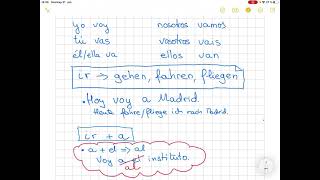 yo voy nosotros vamos
tú vas vosotros vais
él/ella va ellos van
ir → gehen, fahren, fliegen
• Hoy voy a Madrid.
Heute fahre/fliege ich nach Madrid.
ir + a
• a + el => al
Voy a el instituto.
al